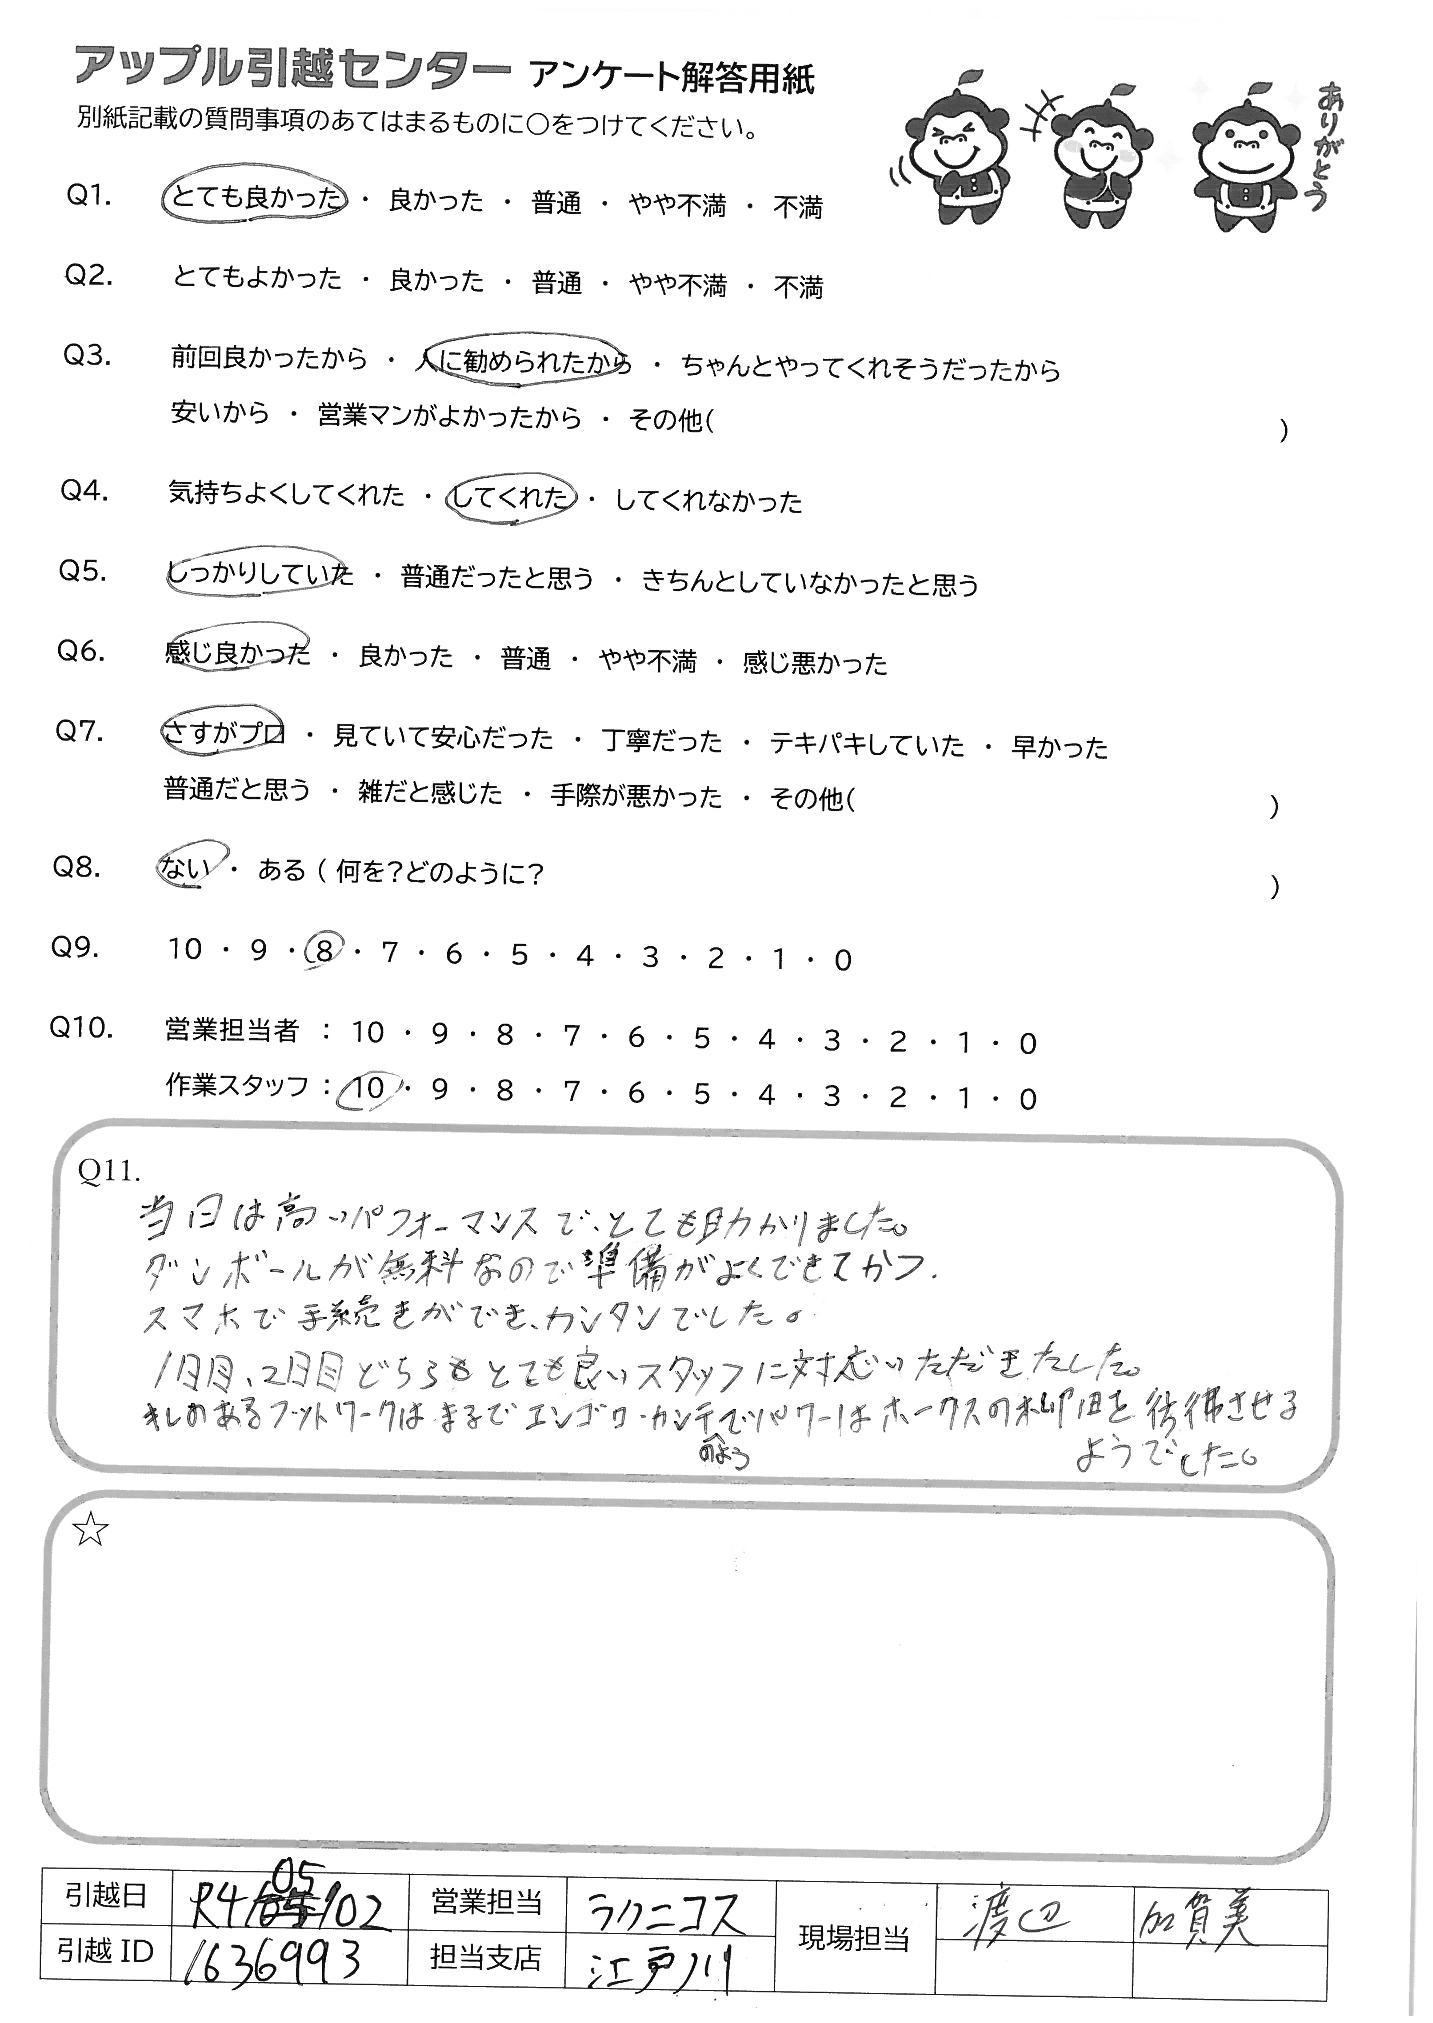 アップル引越センター アンケート解答用紙
別紙記載の質問事項のあてはまるものに○をつけてください。
ありがとう
Q1. とても良かった ・ 良かった ・ 普通 ・ やや不満 ・ 不満
Q2. とてもよかった ・ 良かった ・ 普通 ・ やや不満 ・ 不満
Q3. 前回良かったから ・ 人に勧められたから ・ ちゃんとやってくれそうだったから
安いから ・ 営業マンがよかったから ・ その他( )
Q4. 気持ちよくしてくれた ・ してくれた ・ してくれなかった
Q5. しっかりしていた ・ 普通だったと思う ・ きちんとしていなかったと思う
Q6. 感じ良かった ・ 良かった ・ 普通 ・ やや不満 ・ 感じ悪かった
Q7. さすがプロ ・ 見ていて安心だった ・ 丁寧だった ・ テキパキしていた ・ 早かった
普通だと思う ・ 雑だと感じた ・ 手際が悪かった ・ その他( )
Q8. ない ・ ある ( 何を?どのように? )
Q9. 10 ・ 9 ・ 8 ・ 7 ・ 6 ・ 5 ・ 4 ・ 3 ・ 2 ・ 1 ・ 0
Q10. 営業担当者 : 10 ・ 9 ・ 8 ・ 7 ・ 6 ・ 5 ・ 4 ・ 3 ・ 2 ・ 1 ・ 0
作業スタッフ : 10 ・ 9 ・ 8 ・ 7 ・ 6 ・ 5 ・ 4 ・ 3 ・ 2 ・ 1 ・ 0
Q11.
当日は高いパフォーマンスで、とても助かりました。
ダンボールが無料なので準備がよくできてかつ、
スマホで手続きができ、カンタンでした。
1日目、2日目どちらもとても良いスタッフに対応いただきました。
キレのあるフットワークはまるでエンゴロ・カンテのようでパワーはホークスの柳田を彷彿させる
ようでした。
☆
引越日 R4/05/02 営業担当 ラクニコス 現場担当 渡辺 加賀美
引越 ID 1636993 担当支店 江戸川